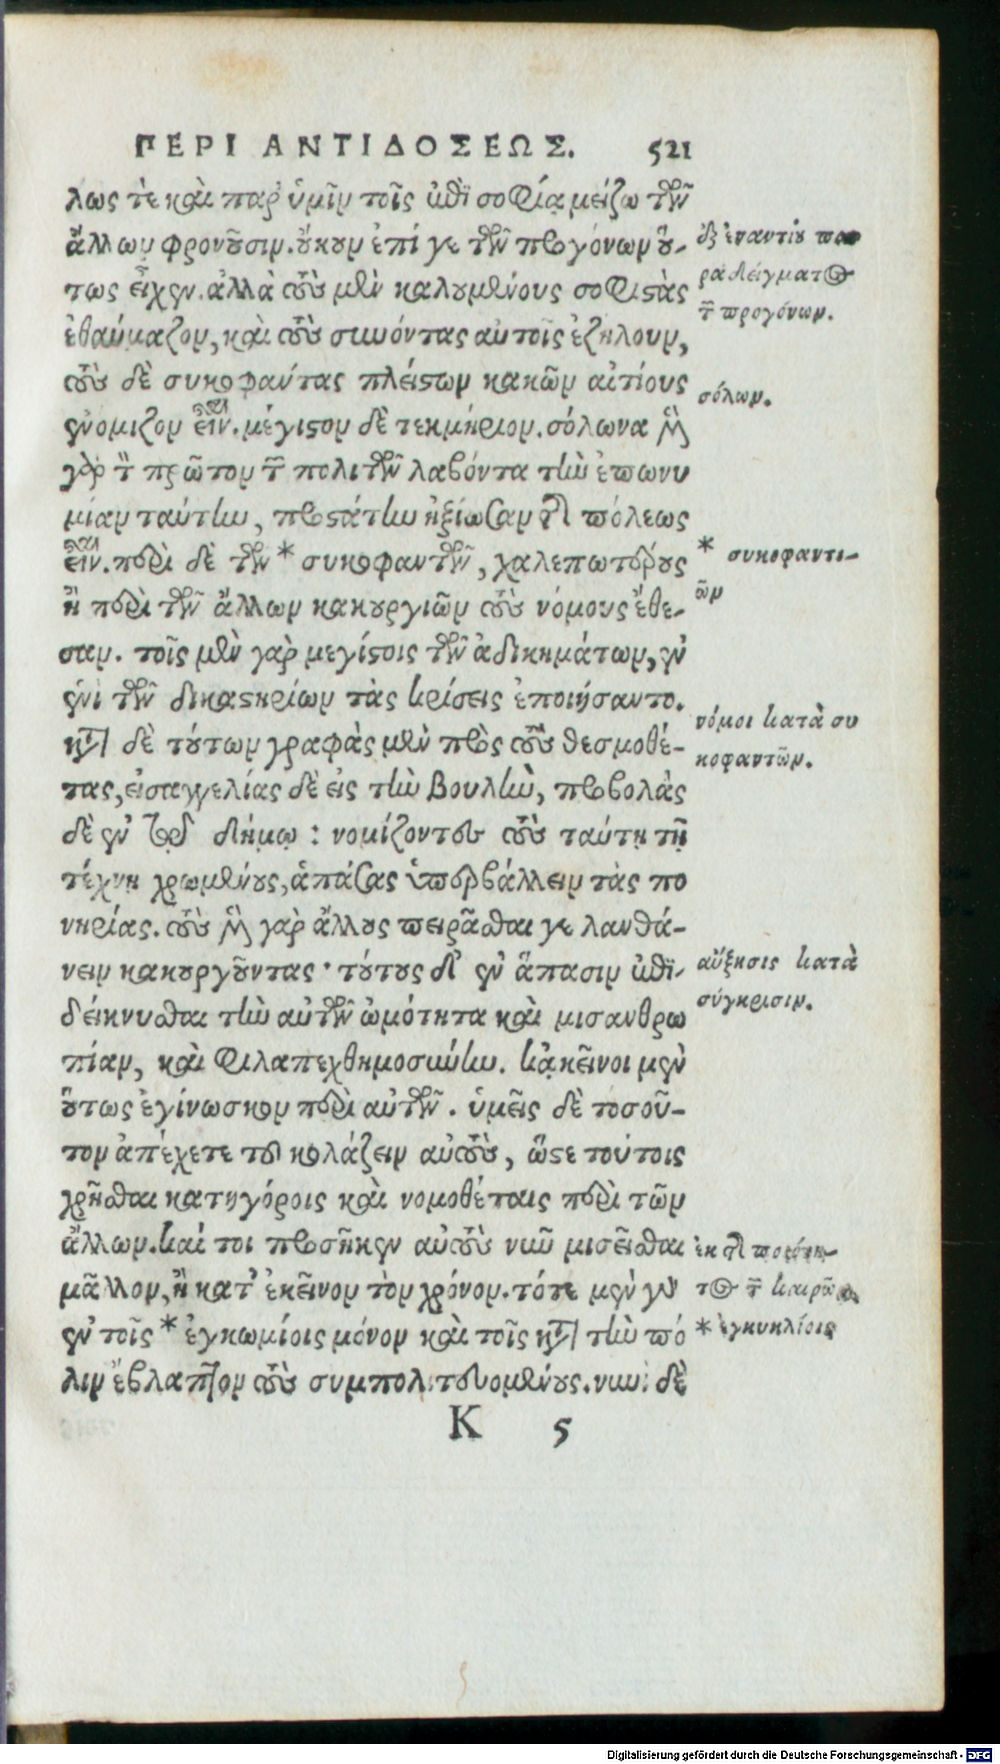 ΠΕΡΙ ΑΝΤΙΔΟΣΕΩΣ. 521
λως τὲ καὶ παρ' ὑμῖν τοῖς ἐπὶ σοφίᾳ μεῖζω τῶν
ἄλλων φρονοῦσιν. οὔκουν ἐπί γε τῶν προγόνων οὕ-
τως εἶχεν. ἀλλὰ τοὺς μὲν καλουμένους σοφιστὰς
ἐθαύμαζον, καὶ τοὺς συνόντας αὐτοῖς ἐζήλουν,
τοὺς δὲ συκοφάντας πλείστων κακῶν αἰτίους
ἐνόμιζον εἶναι. μέγιστον δὲ τεκμήριον. σόλωνα μὲν
γὰρ τὸν πρῶτον τῶν πολιτῶν λαβόντα τὴν ἐπωνυ
μίαν ταύτην, προστάτην ἠξίωσαν τῆς πόλεως
εἶναι. περὶ δὲ τῶν * συκοφαντῶν, χαλεπωτέρους
ἢ περὶ τῶν ἄλλων κακουργιῶν τοὺς νόμους ἔθε-
σαν. τοῖς μὲν γὰρ μεγίστοις τῶν ἀδικημάτων, ἐν
ἑνὶ τῶν δικαστηρίων τὰς κρίσεις ἐποιήσαντο.
κατὰ δὲ τούτων γραφὰς μὲν πρὸς τοὺς θεσμοθέ-
τας, εἰσαγγελίας δὲ εἰς τὴν βουλὴν, προβολὰς
δὲ ἐν τῷ δήμῳ : νομίζοντες τοὺς ταύτῃ τῇ
τέχνῃ χρωμένους, ἁπάσας ὑπερβάλλειν τὰς πο
νηρίας. τοὺς μὲν γὰρ ἄλλους πειρᾶσθαι γε λανθά-
νειν κακουργοῦντας· τούτους δ' ἐν ἅπασιν ἐπι-
δείκνυσθαι τὴν αὐτῶν ὠμότητα καὶ μισανθρω
πίαν, καὶ φιλαπεχθημοσύνην. κἀκεῖνοι μὲν
οὕτως ἐγίνωσκον περὶ αὐτῶν. ὑμεῖς δὲ τοσοῦ-
τον ἀπέχετε τοῦ κολάζειν αὐτοὺς, ὥστε τούτοις
χρῆσθαι κατηγόροις καὶ νομοθέταις περὶ τῶν
ἄλλων. καί τοι προσῆκεν αὐτοὺς νῦν μισεῖσθαι
μᾶλλον, ἢ κατ' ἐκεῖνον τὸν χρόνον. τότε μὲν γὰρ
ἐν τοῖς * ἐγκωμίοις μόνον καὶ τοῖς κατὰ τὴν πό
λιν ἔβλαπτον τοὺς συμπολιτευομένους. νῦν δὲ
K 5
ἐξ ἐναντίου πα
ραδείγματος
τῶν προγόνων.
σόλων.
* συκοφαντι-
ῶν
νόμοι κατὰ συ
κοφαντῶν.
αὔξησις κατὰ
σύγκρισιν.
ἐκ τῆς ποιότη-
τος τῶν καιρῶν
* ἐγκυκλίοις
Digitalisierung gefördert durch die Deutsche Forschungsgemeinschaft - DFG